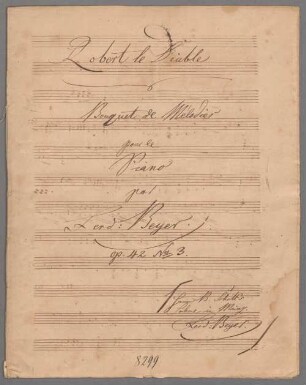 Robert le Diable
Bouquets de Mélodies
pour le
Piano
par
Ferd: Beyer.
op. 42 No 3.
Ferd: Beyer
8299